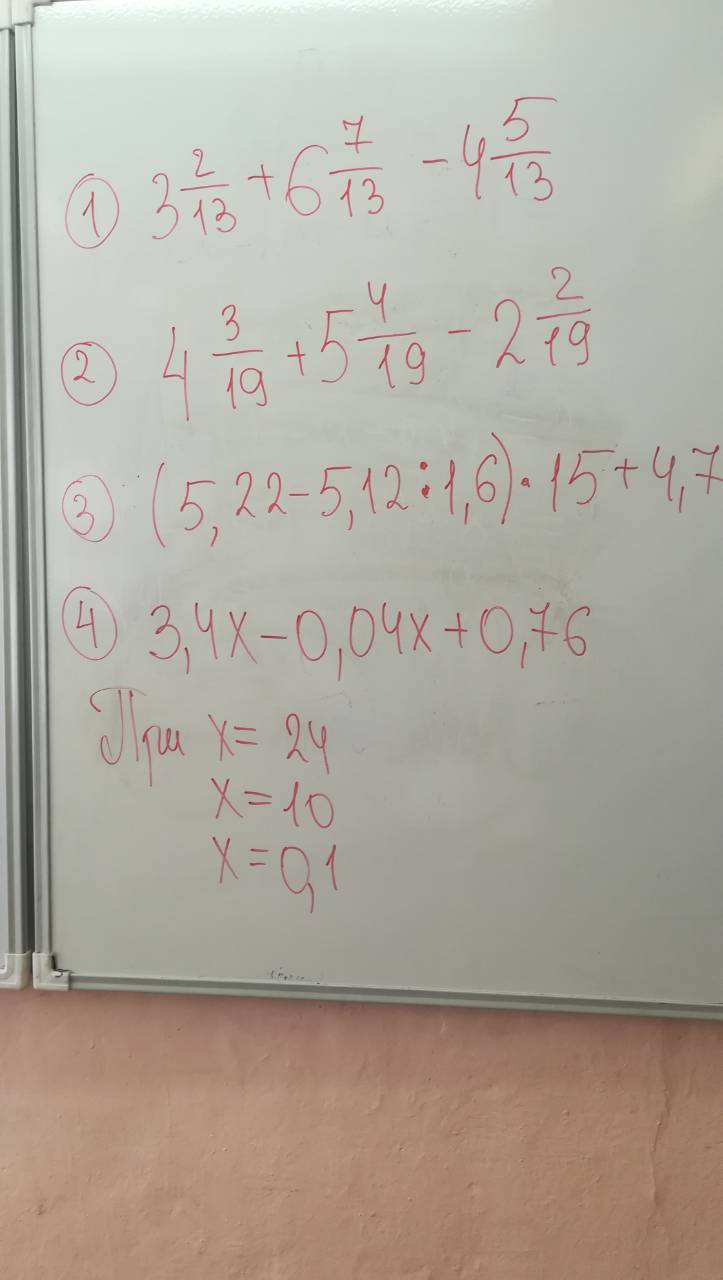 ① 3 2/13 + 6 7/13 - 4 5/13
② 4 3/19 + 5 4/19 - 2 2/19
③ (5,22-5,12:1,6)·15+4,7
④ 3,4x-0,04x+0,76
При x=24
x=10
x=0,1